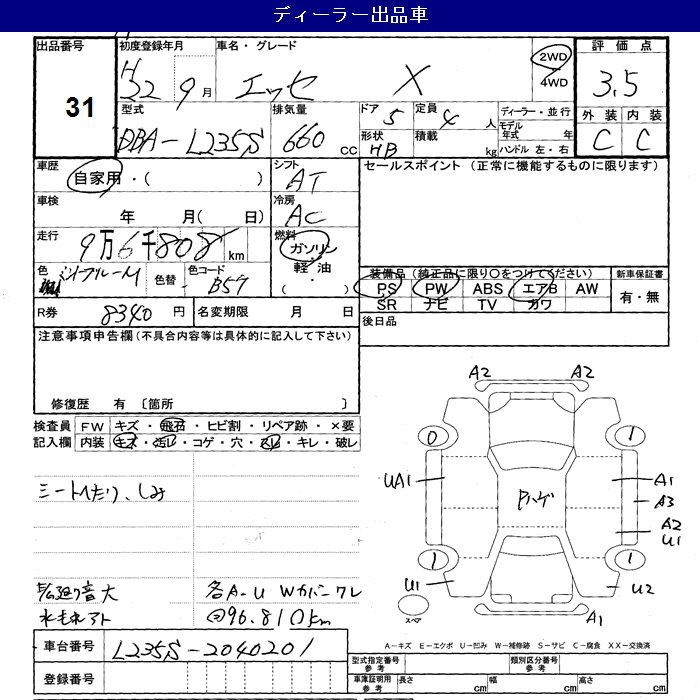 ディーラー出品車
出品番号 31
初度登録年月 H22 9月
車名・グレード エッセ X
2WD
4WD
評価点 3.5
外装 内装
C C
型式 DBA-L235S
排気量 660 CC
ドア 5
定員 4 人
形状 HB
積載 kg
ディーラー・並行
モデル年式 年
ハンドル 左・右
車歴 自家用・( )
シフト AT
セールスポイント (正常に機能するものに限ります)
車検 年 月( 日)
冷房 AC
走行 9万6千808 km
燃料 ガソリン
軽油
・( )
色
色替
色コード B59
装備品 (純正品に限り○をつけてください)
新車保証書
PS PW ABS エアB AW
有・無
SR ナビ TV カワ
R券 8340 円
名変期限 月 日
後日品
注意事項申告欄(不具合内容等は具体的に記入して下さい)
修復歴 有 〔箇所 〕
検査員 FW キズ・飛石・ヒビ割・リペア跡・×要
記入欄 内装 キズ・汚レ・コゲ・穴・スレ・キレ・破レ
シートへたり、しみ
各A-U Wカバーワレ
96.810km
A2 A2
0 1
UA1 Pハゲ A1
A3
A2
U1
1 1
U1 U2
スペア
A1
A-キズ E-エクボ U-凹み W-補修跡 S-サビ C-腐食 XX-交換済
車台番号 L235S-2040201
登録番号
型式指定番号 参考
類別区分番号 参考
車庫証明用 参考
長さ cm 幅 cm 高さ cm